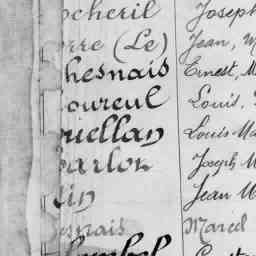 ocheril Joseph
orre (Le) Jean, M
hesnais Ernest, M
oureul Louis,
riellan Louis Ma
arlot Joseph M
in Jean M
esnais Marcel